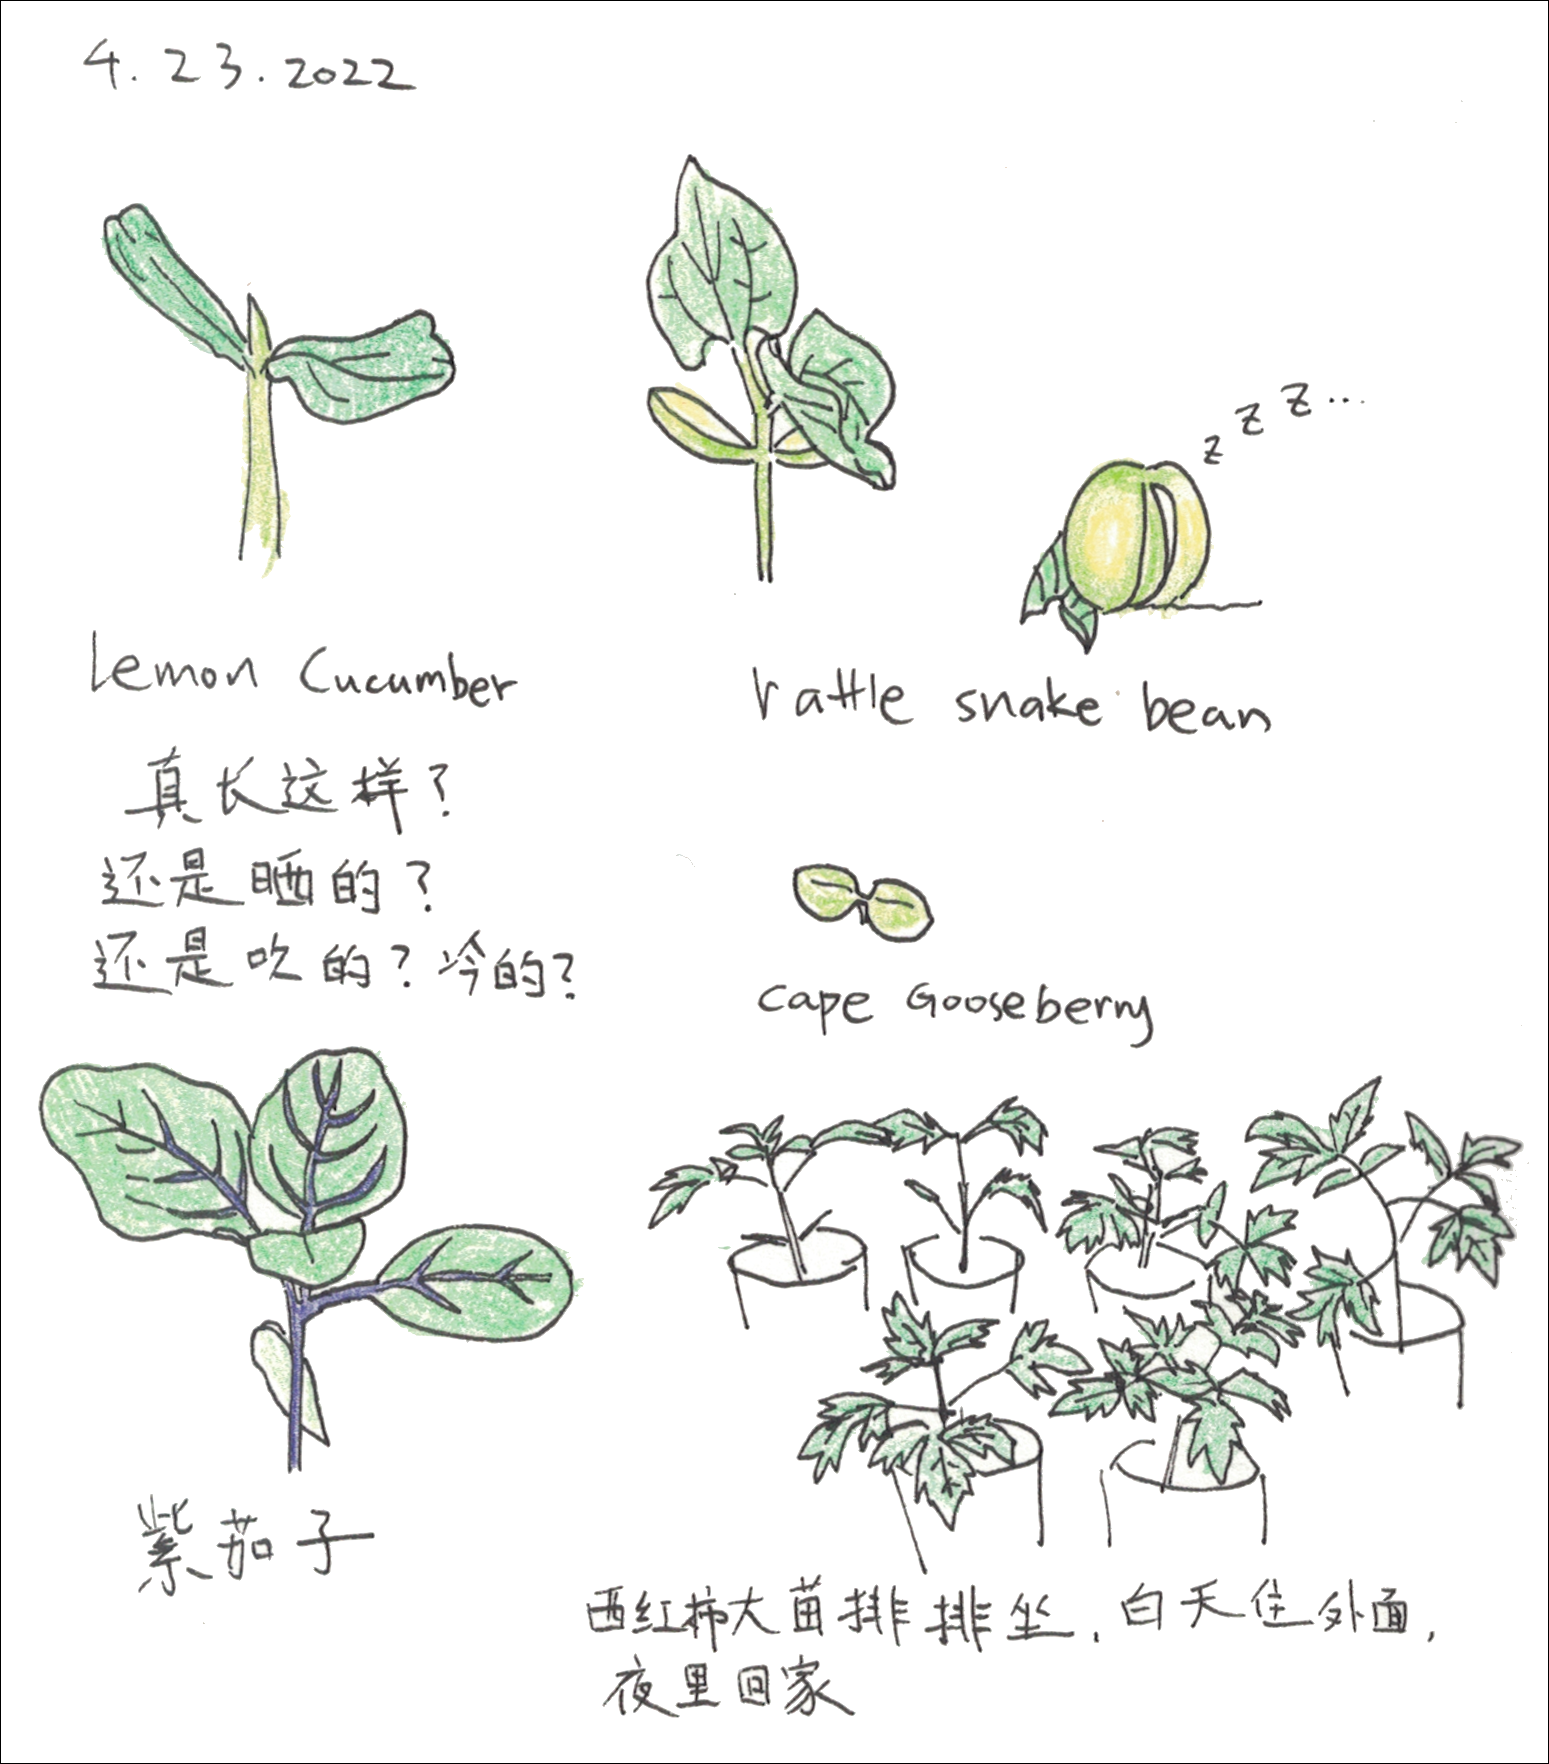 4.23.2022
z z z...
Lemon Cucumber
rattle snake bean
真长这样？
还是晒的？
还是吹的？冷的？
cape Gooseberry
紫茄子
西红柿大苗排排坐，白天住外面，
夜里回家